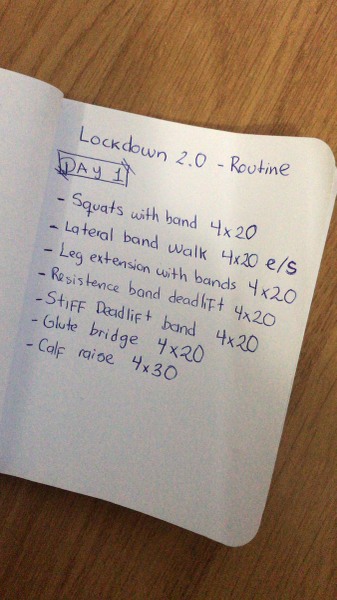 Lockdown 2.0 - Routine
DAY 1
- Squats with band 4x20
- Lateral band walk 4x20 e/s
- Leg extension with bands 4x20
- Resistence band deadlift 4x20
- Stiff Deadlift band 4x20
- Glute bridge 4x20
- Calf raise 4x30